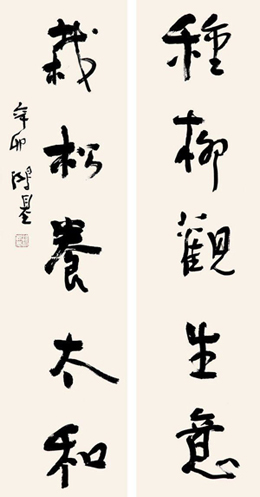 種柳觀生意
栽松養太和
辛卯 鴻墨